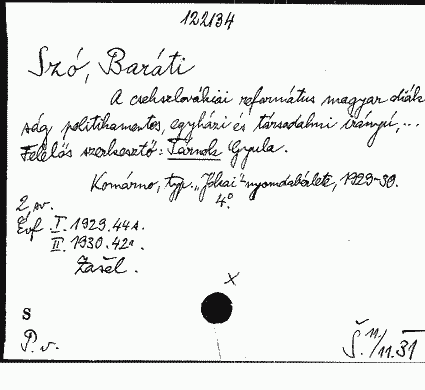 122134
Szó, Baráti
A csehszlovákiai református magyar diák-
ság politikamentes, egyházi és társadalmi irányú,...
Felelős szerkesztő: Tárnok Gyula.
Komárno, typ. „Jókai" nyomdabérlete, 1929-30.
4°.
2 sv.
Évf. I. 1929. 44 s.
II. 1930. 42 s.
Zašel.
x
S
P. v.
Š. 11/11. 31